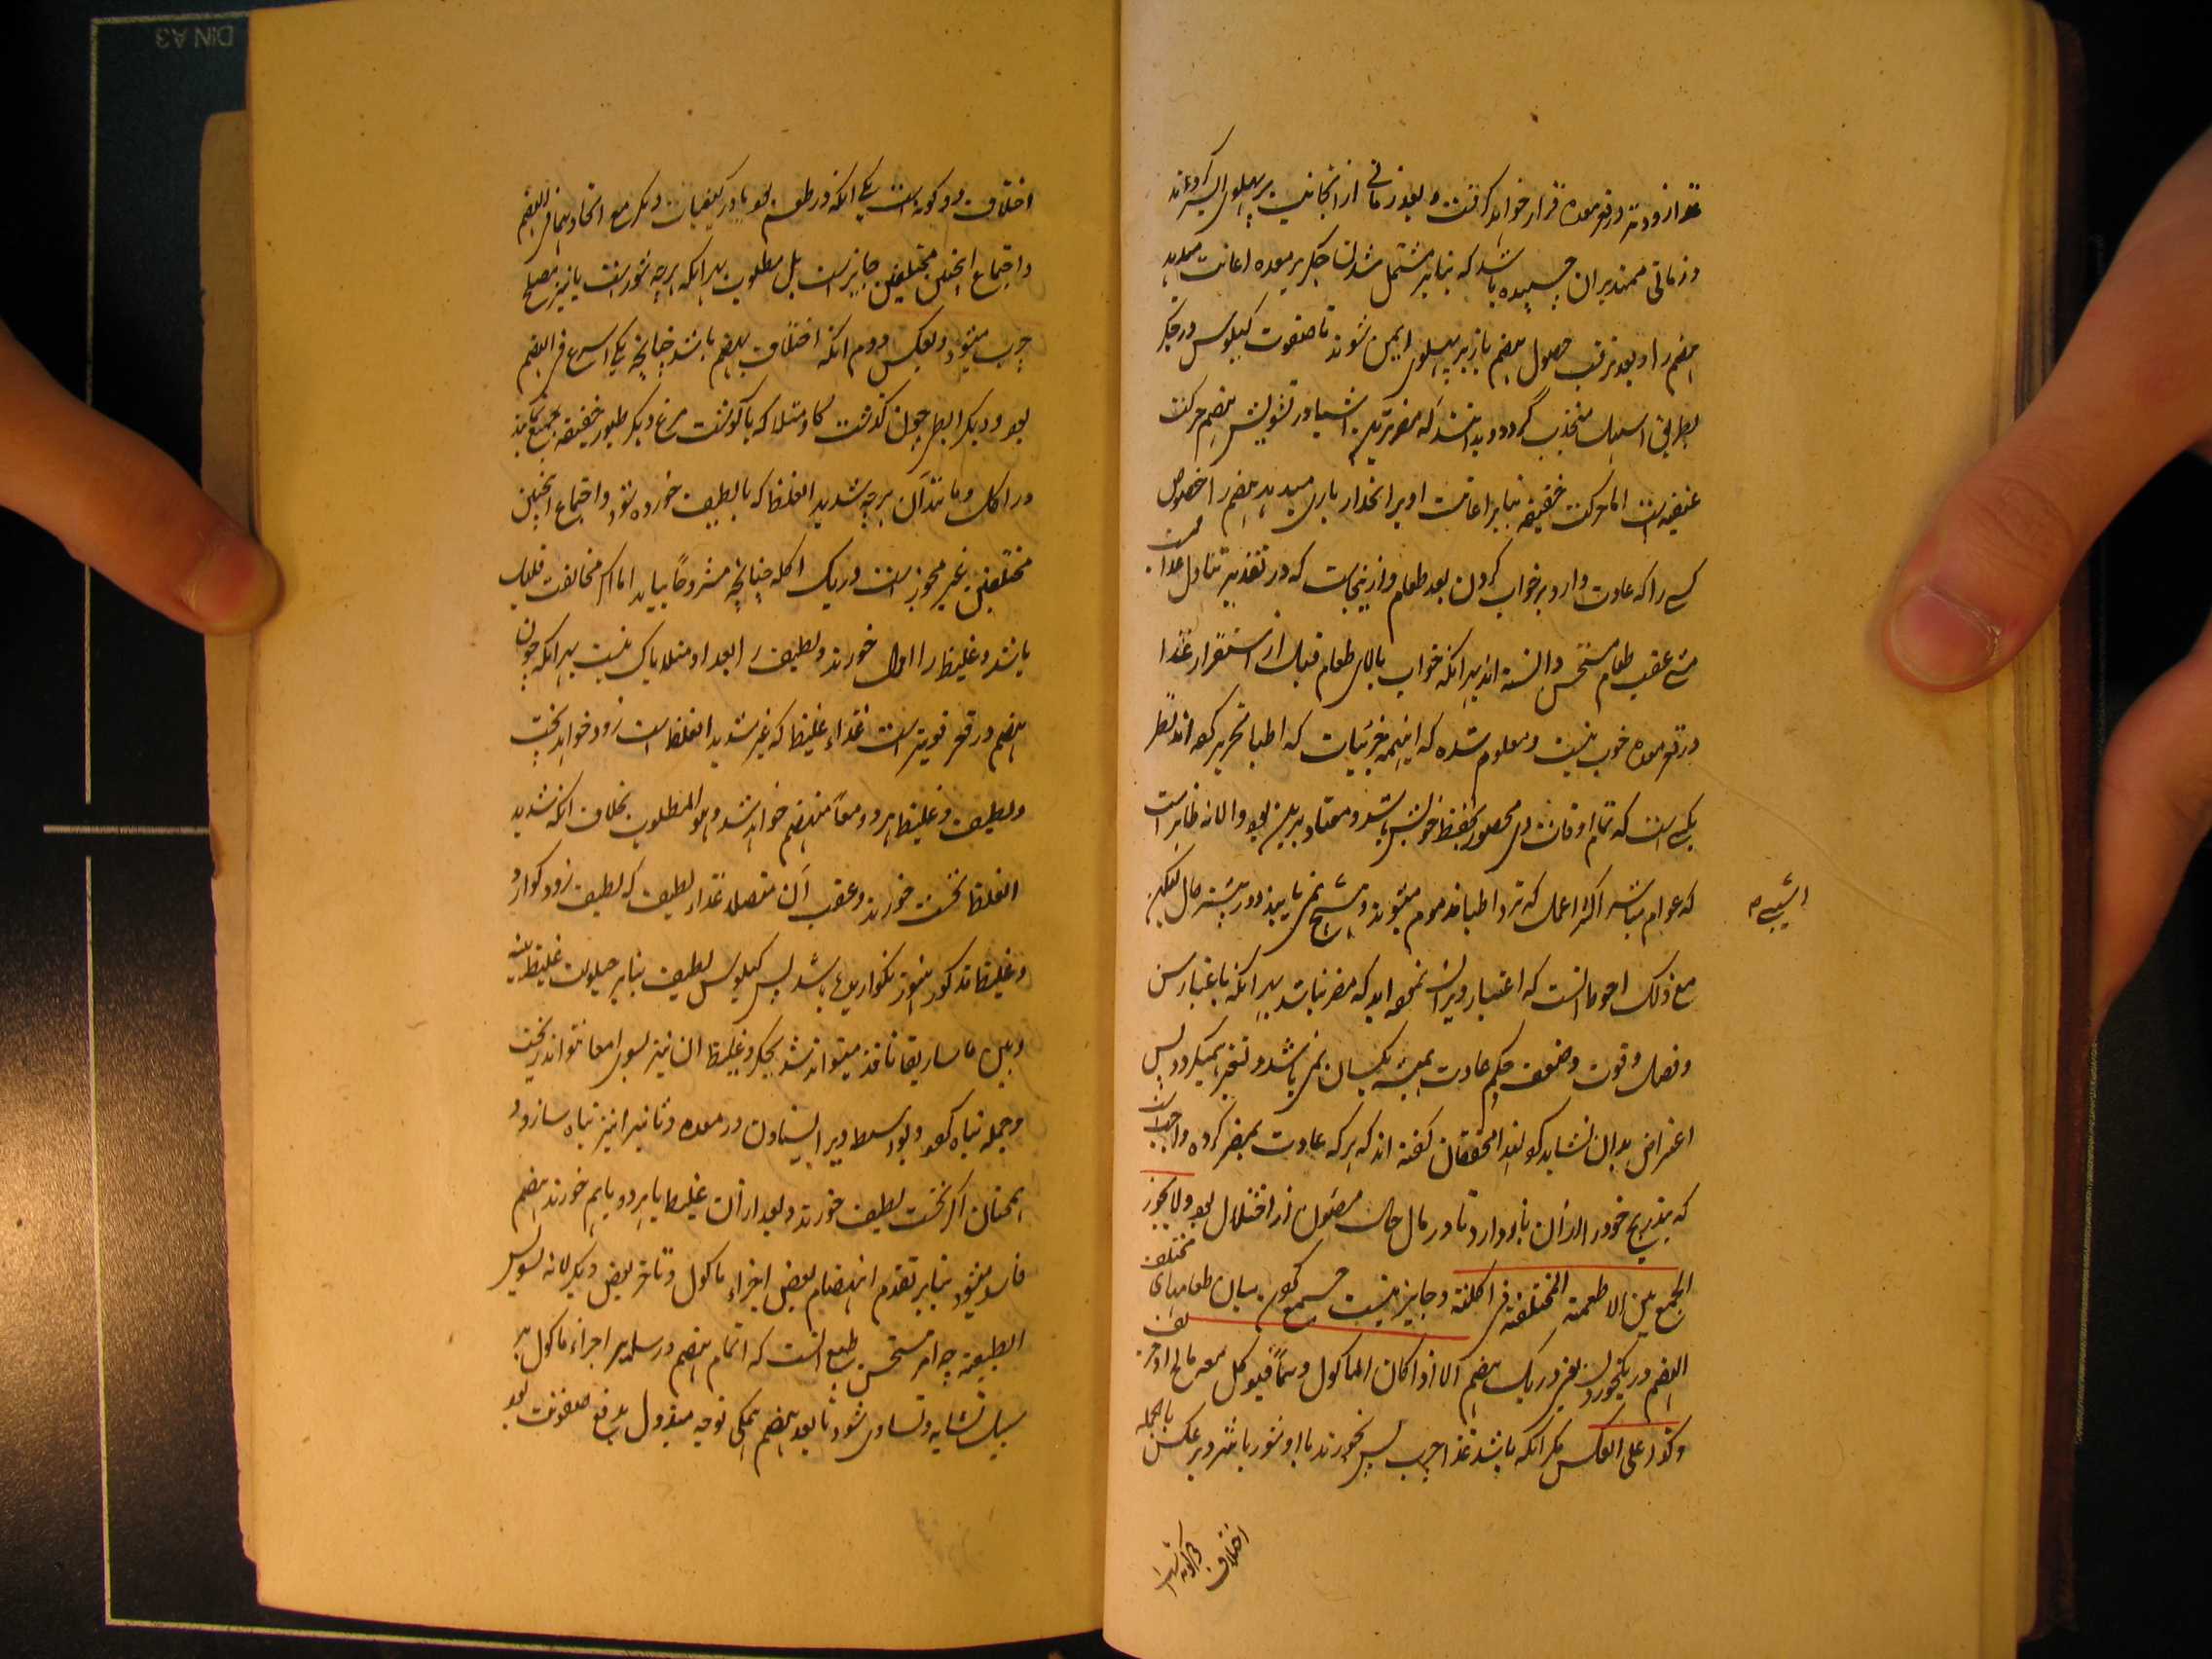 غذا زودتر در قعر معده قرار خواهد گرفت و بعد زمانی از انجانب بر پهلوی ایسر گردند
و زمانی ممتد بران چسپیده باشد که بنابر مشتمل شدن جگر بر معده اعانت میدهد
هضم را و بعد ترتب حصول هضم باز بر پهلوی ایمن شوند تا صفوت کیلوس در جگر
بطریق اسهل منجذب گردد و بدانند که مضرترین اشیا در تشویش هضم حرکت
عنیفه است اما حرکت خفیفه بنابر اعانت او بر انحدار یاری میدهد هضم را خصوص
کسی را که عادت دارد بر خواب کردن بعد طعام و ازینجاست که در تقدیر تناول غدا
مشی عقب طعام مستحسن دانسته اند بهر انکه خواب بالای طعام قبل از استقرار غذا
در قعر معده خوب نیست و معلوم شده که اینهمه جزئیات که اطبا تحریر کرده اند نظر
بکسی است که تمام اوقات وی محصور بحفظ خویش باشد و معتاد بدین بود والا نه ظاهر است
که عوام مباشر اکثر اعمال که نزد اطبا مذموم میشوند و هیچ نمی یابند در بیشتر حال لیکن
مع ذلک احوط انست که اعتبار بران ننموده اید که مضر نباشد بهر انکه باعتبار سن
و فصل و قوت و ضعف حکم عادت همیشه یکسان نمی باشد و تغیر میکردد پس
اعتراض بدان نشاید کو لهذا محققان کفته اند که هر که عادت بمضر کرده واجب است
که بتدریج خود را از ان باز دارد تا در مال حال مصئون از اختلال بود ولا یجوز
الجمع بین الاطعمة المختلفة فی اکلة و جایز نیست جمع کردن میان طعامهای مختلف
الهضم در یکخوردن یعنی در یک هضم الا اذا کان الماکول دسما فیوکل معه مالح او حریف
وکذا علی العکس مگر انکه باشد غذا چرب پس بخورند با او شور یا تند و بر عکس بالجمله
اختلاف دو کونه است
اختلاف دو کونه است یکی انکه در طعم بود یا در کیفیات دیگر مع اتحاد هما فی الهضم
و اجتماع اینچنین مختلفین جایز است بل مطلوب بهر انکه هرچه شور است یا تیز مصلح
چرب میشود و بعکس دوم انکه اختلاف بهضم باشد چنانچه یکی اسرع فی الهضم
بود و دیگر ابطی چون گوشت کاو مثلا که با گوشت مرغ و دیگر طیور خفیفه جمع کنند
در اکل و مانند آن هرچه شدید الغلظ که با لطیف خورده شود و اجتماع اینچنین
مختلفین غیر مجوز است در یک اکله چنانچه مشروحاً بیاید اما اکر مخالفت قلیل
باشد و غلیظ را اول خورند و لطیف را بعد او مثلا باک نیست بهر انکه چون
هضم در قعر قویتر است غذاء غلیظ که غیر شدید الغلظ است زود خواهد پخت
و لطیف و غلیظ هر دو معاً منهضم خواهند شد و هو المطلوب بخلاف انکه شدید
الغلظ نخست خورند و عقب آن متصل غذاء لطیف که لطیف زود گوارد
و غلیظ مذکور هنوز نگواریده باشد پس کیلوس لطیف بنابر حیلولت غلیظ بینه
و بین ماساریقا نافذ نمیتواند شد بجگر و غلیظ ان نیز بسوی امعا نتواند ریخت
و جمله تباه کردد و بواسطه دیر ایستادن در معده و تاثیر انرا نیز تباه سازد و
همچنان اکر نخست لطیف خورند و بعد ازان غلیظ یا هر دو باهم خورند هضم
فاسد میشود بنابر تقدم انهضام بعض اجزاء ماکول و تاخر بعض دیگر لانه تشویش
الطبیعة چه امر مستحسن طبع انست که اتمام هضم در سلیر اجزاء ماکول بر
سبیل تشابه و تساوی شود تا بعد هضم همگی توجه مبذول بدفع صفوت بود